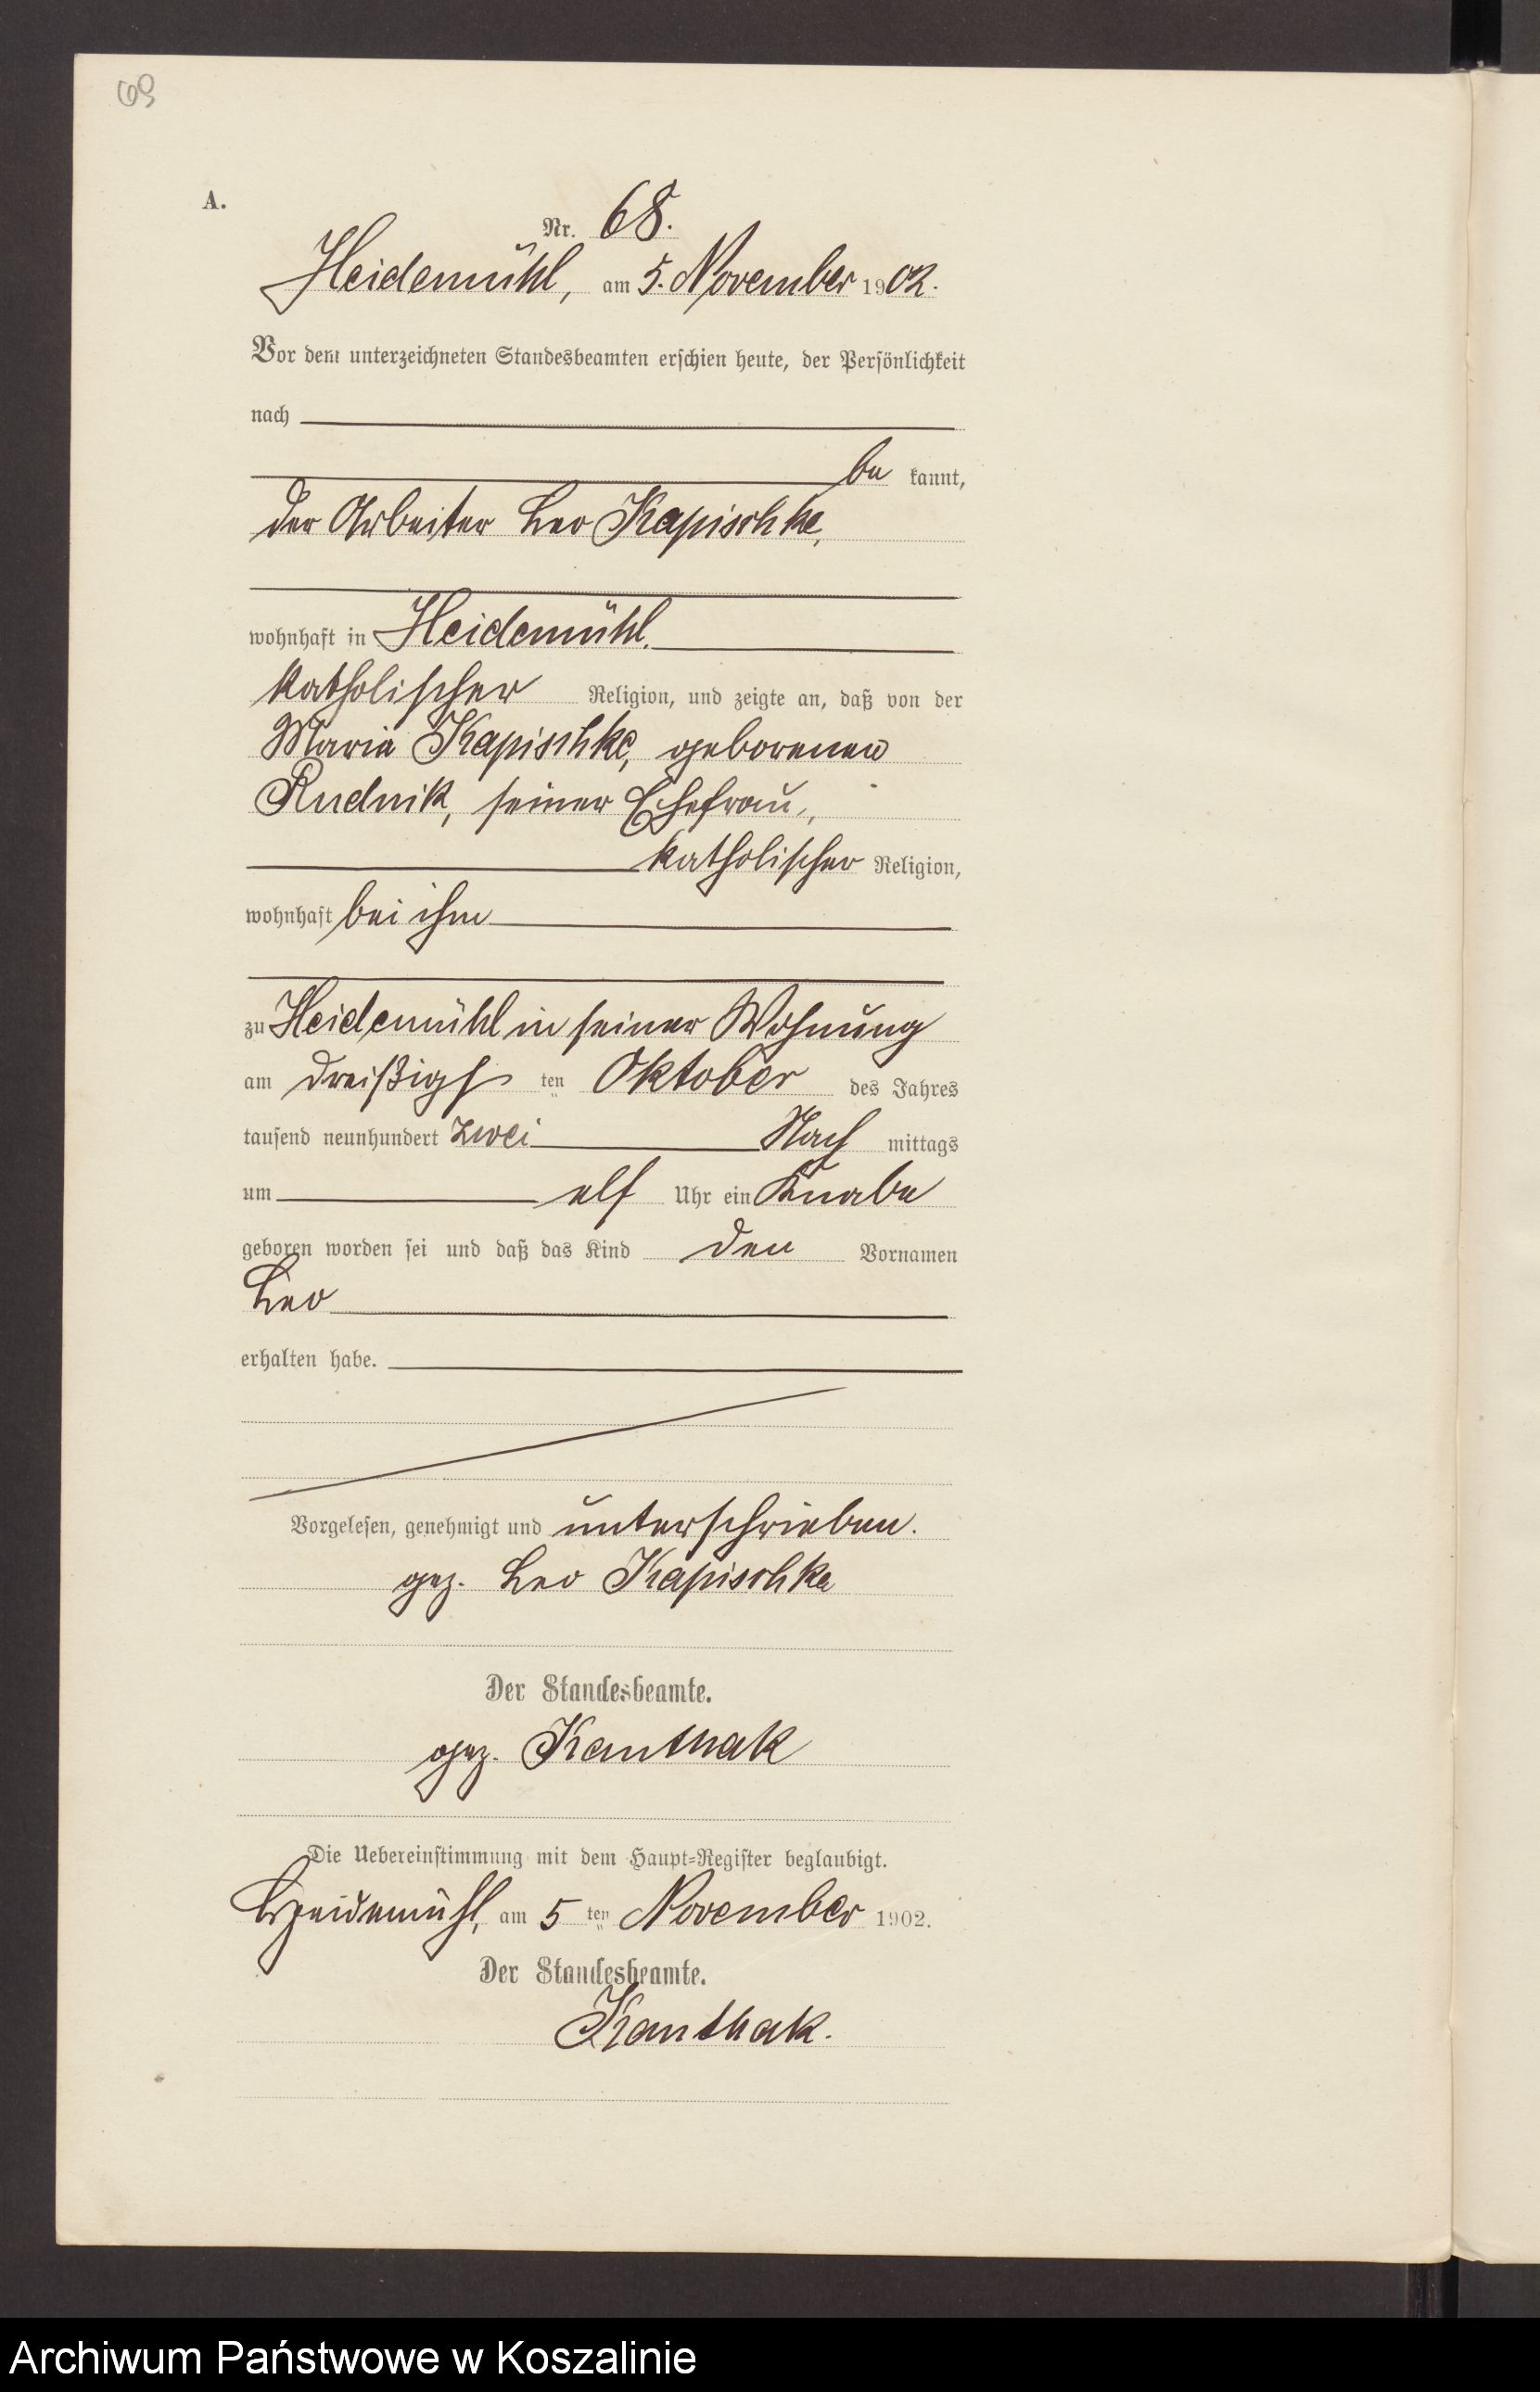 69
A.
Nr. 68.
Heidemühl, am 5. November 1902.
Vor dem unterzeichneten Standesbeamten erschien heute, der Persönlichkeit
nach
be kannt,
der Arbeiter Leo Kapischke,
wohnhaft in Heidemühl.
katholischer Religion, und zeigte an, daß von der
Maria Kapischke, geborenen
Rudnik, seiner Ehefrau,
katholischer Religion,
wohnhaft bei ihm
zu Heidemühl in seiner Wohnung
am dreißigs ten Oktober des Jahres
tausend neunhundert zwei Nach mittags
um elf Uhr ein Knabe
geboren worden sei und daß das Kind den Vornamen
Leo
erhalten habe.
Vorgelesen, genehmigt und unterschrieben.
gez. Leo Kapischke
Der Standesbeamte.
gez. Kanthak
Die Uebereinstimmung mit dem Haupt=Register beglaubigt.
Heidemühl, am 5 ten November 1902.
Der Standesbeamte.
Kanthak.
Archiwum Państwowe w Koszalinie